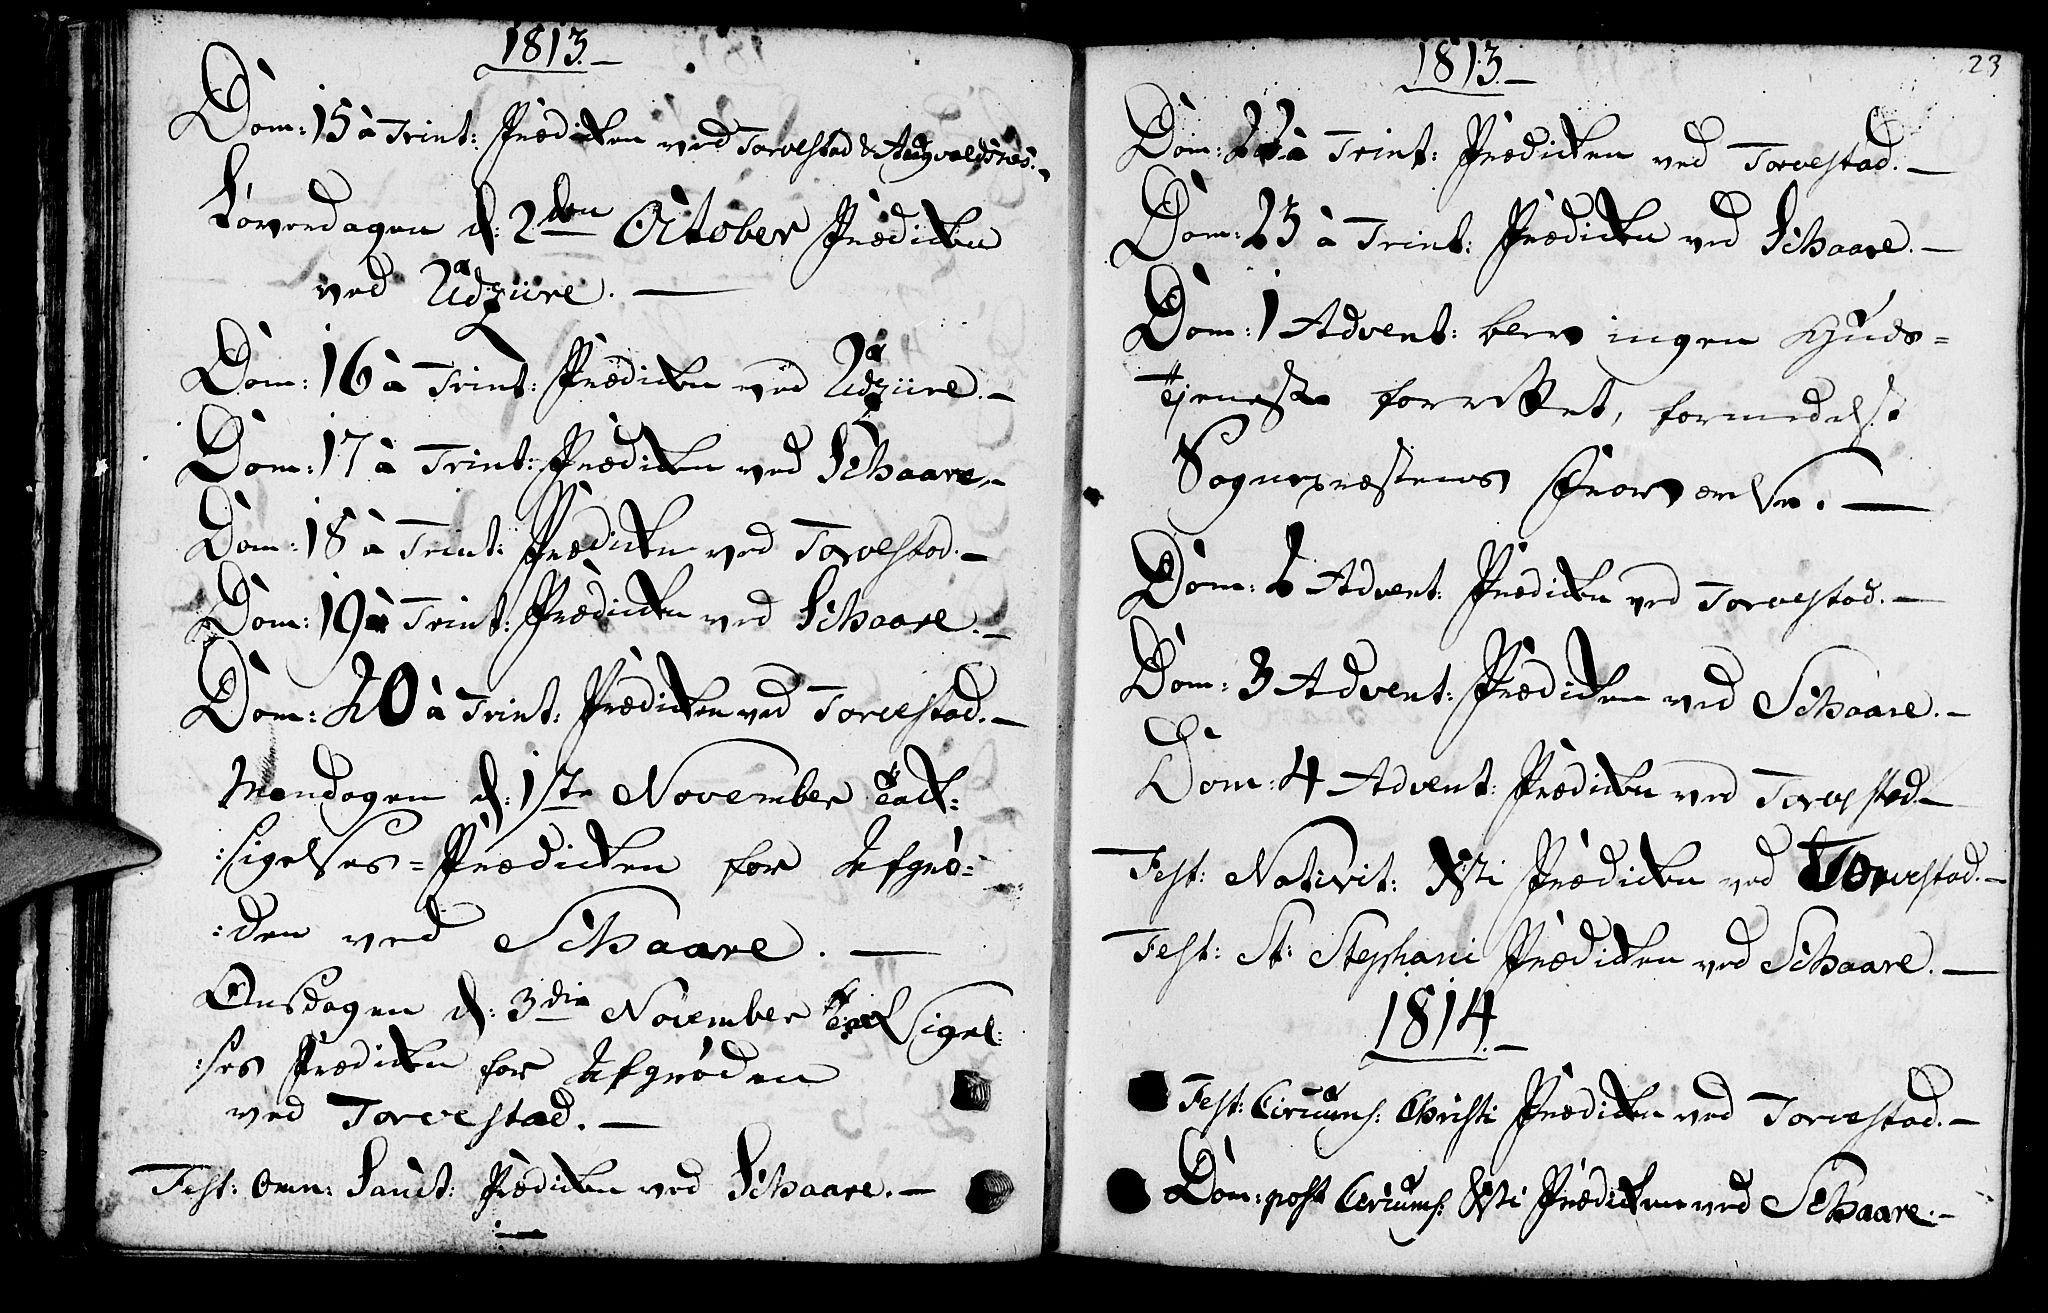 1813.
Dom: 15 à Trint: Prædicken ved Torvestad & Augvaldsnes.
Løverdagen d: 2den October Prædicken
ved Udzüre.
Dom: 16 à Trint: Prædicken ved Udzüre.
Dom: 17 à Trint: Prædicken ved Schaare.
Dom: 18 à Trint: Prædicken ved Torvestad.
Dom: 19 à Trint: Prædicken ved Schaare.
Dom: 20 à Trint: Prædicken ved Torvestad.
Mandagen d: 1ste November Tack:
:sigelses=Prædicken for Afgrø:
:den ved Schaare.
Onsdagen d: 3die November Tacksigel:
:ses Prædicken for Afgrøden
ved Torvestad.
Fest: Omn: Sanct: Prædicken ved Schaare.
23
1813.
Dom: 22 à Trint: Prædicken ved Torvestad.
Dom: 23 à Trint: Prædicken ved Schaare.
Dom: 1 Advent: blev ingen Guds=
Tjeneste forrettet, formedelst
Sognepræstens Fraværelse.
Dom: 2 Advent: Prædicken ved Torvestad.
Dom: 3 Advent: Prædicken ved Schaare.
Dom: 4 Advent: Prædicken ved Torvestad.
Fest: Nativit: Xsti Prædicken ved Torvestad.
Fest: St: Stephani Prædicken ved Schaare.
1814.
Fest: Circums: Christi Prædicken ved Torvestad.
Dom: post Circums: Xsti Prædicken ved Schaare.